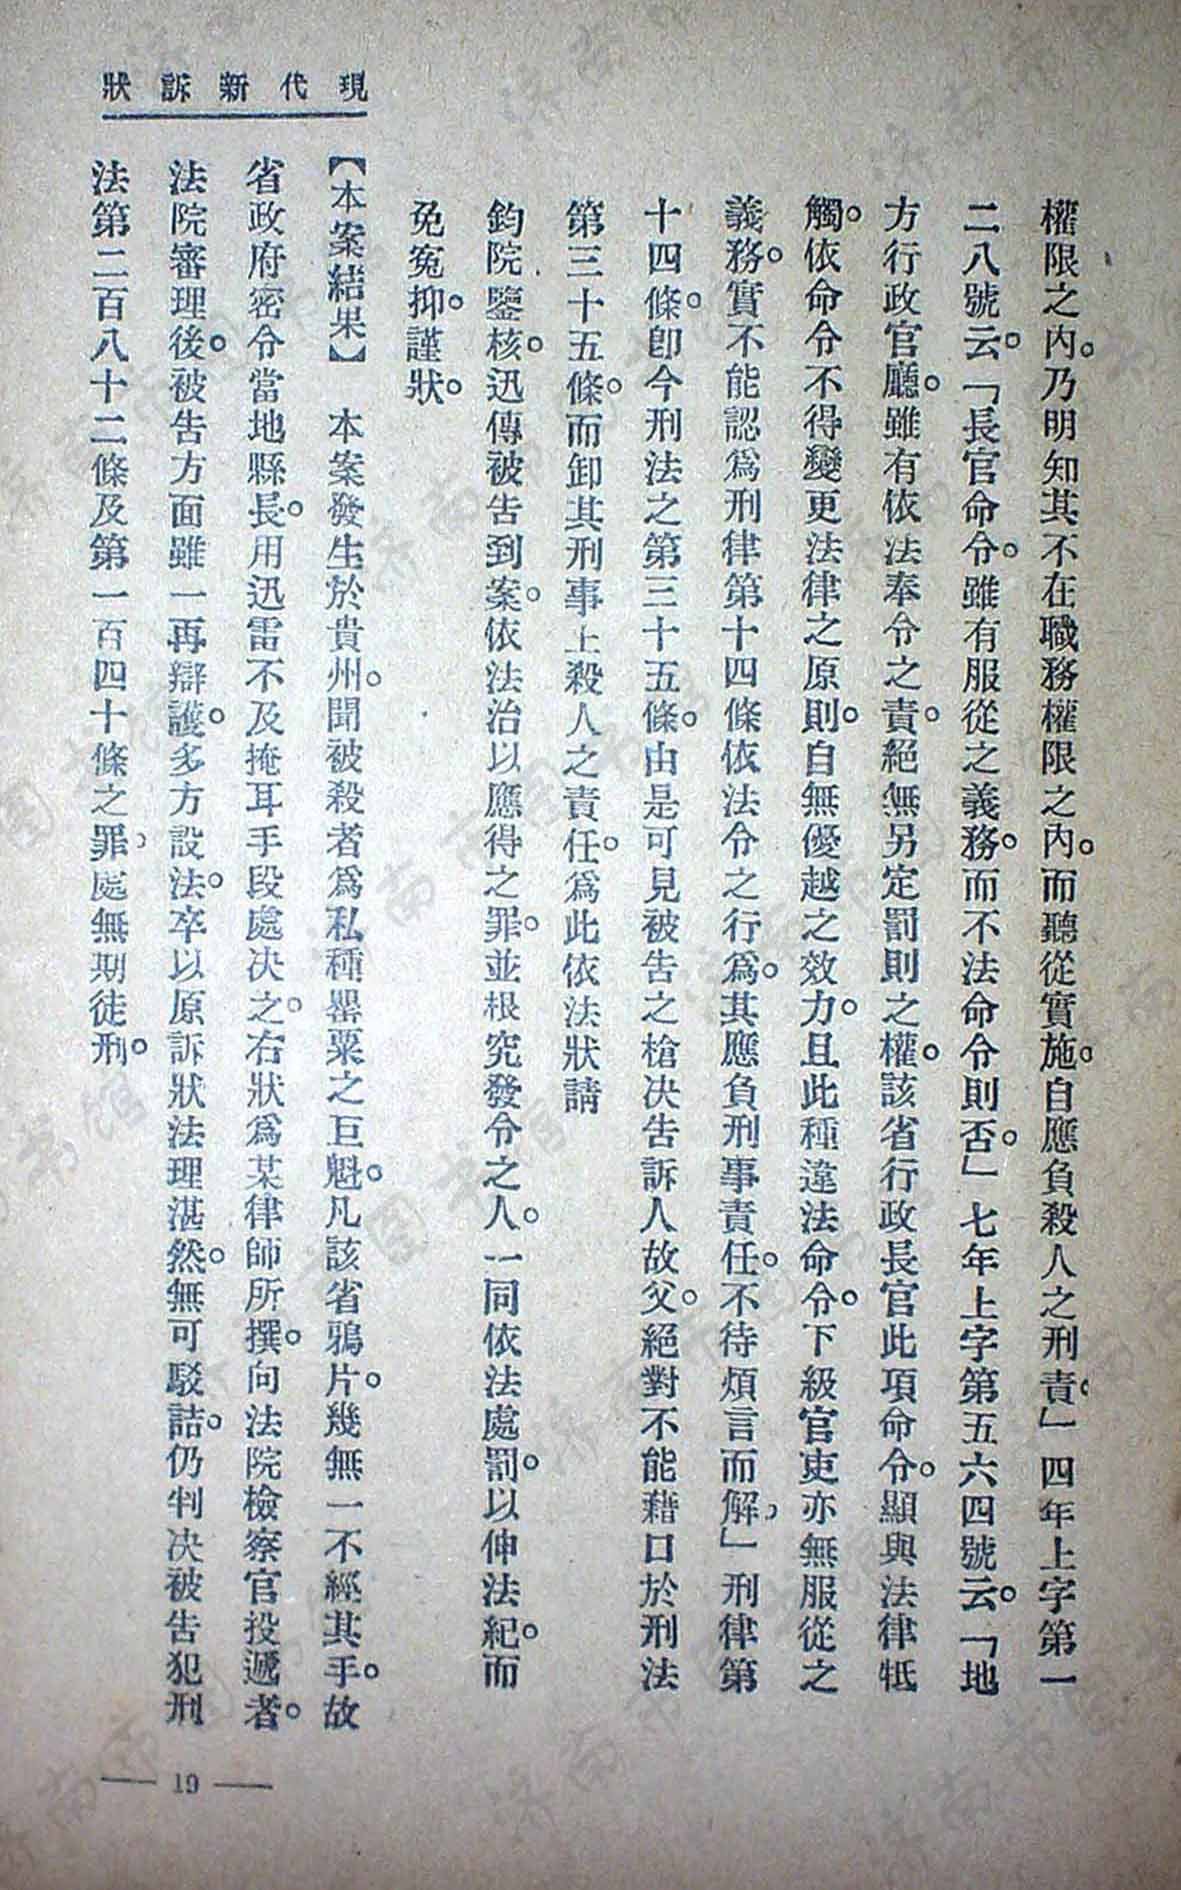 現代新訴狀
權限之內。乃明知其不在職務權限之內。而聽從實施。自應負殺人之刑責」四年上字第一
二八號云。「長官命令。雖有服從之義務。而不法命令則否。」七年上字第五六四號云。「地
方行政官廳。雖有依法奉令之責。絕無另定罰則之權。該省行政長官此項命令。顯與法律牴
觸。依命令不得變更法律之原則。自無優越之效力。且此種違法命令。下級官吏亦無服從之
義務。實不能認爲刑律第十四條依法令之行爲。其應負刑事責任。不待煩言而解」刑律第
十四條。卽今刑法之第三十五條。由是可見被告之槍决告訴人故父。絕對不能藉口於刑法
第三十五條。而卸其刑事上殺人之責任。爲此依法狀請
鈞院鑒核。迅傳被告到案。依法治以應得之罪。並根究發令之人。一同依法處罰。以伸法紀。而
免寃抑。謹狀。
【本案結果】 本案發生於貴州。聞被殺者爲私種罌粟之巨魁。凡該省鴉片。幾無一不經其手。故
省政府密令當地縣長。用迅雷不及掩耳手段處决之。右狀爲某律師所撰。向法院檢察官投遞者。
法院審理後。被告方面雖一再辯護。多方設法。卒以原訴狀法理湛然。無可駁詰。仍判决被告犯刑
法第二百八十二條及第一百四十條之罪。處無期徒刑。
— 19 —